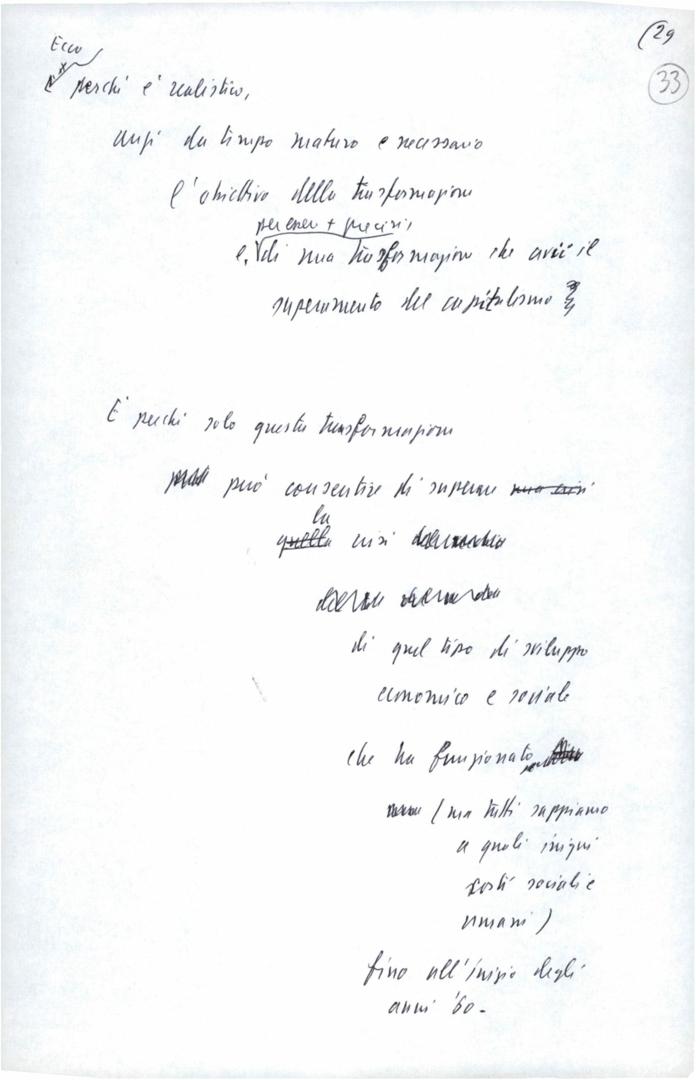 (29
33
Ecco
perché è realistico,
anzi da tempo maturo e necessario
l'obiettivo della trasformazione
per esser + precisi,
e, di una trasformazione che avvii il
superamento del capitalismo
E perché solo questa trasformazione
può consentire di superare una crisi
la
quella crisi
di quel tipo di sviluppo
economico e sociale
che ha funzionato
(ma tutti sappiamo
a quali iniqui
costi sociali e
umani)
fino all'inizio degli
anni '60-